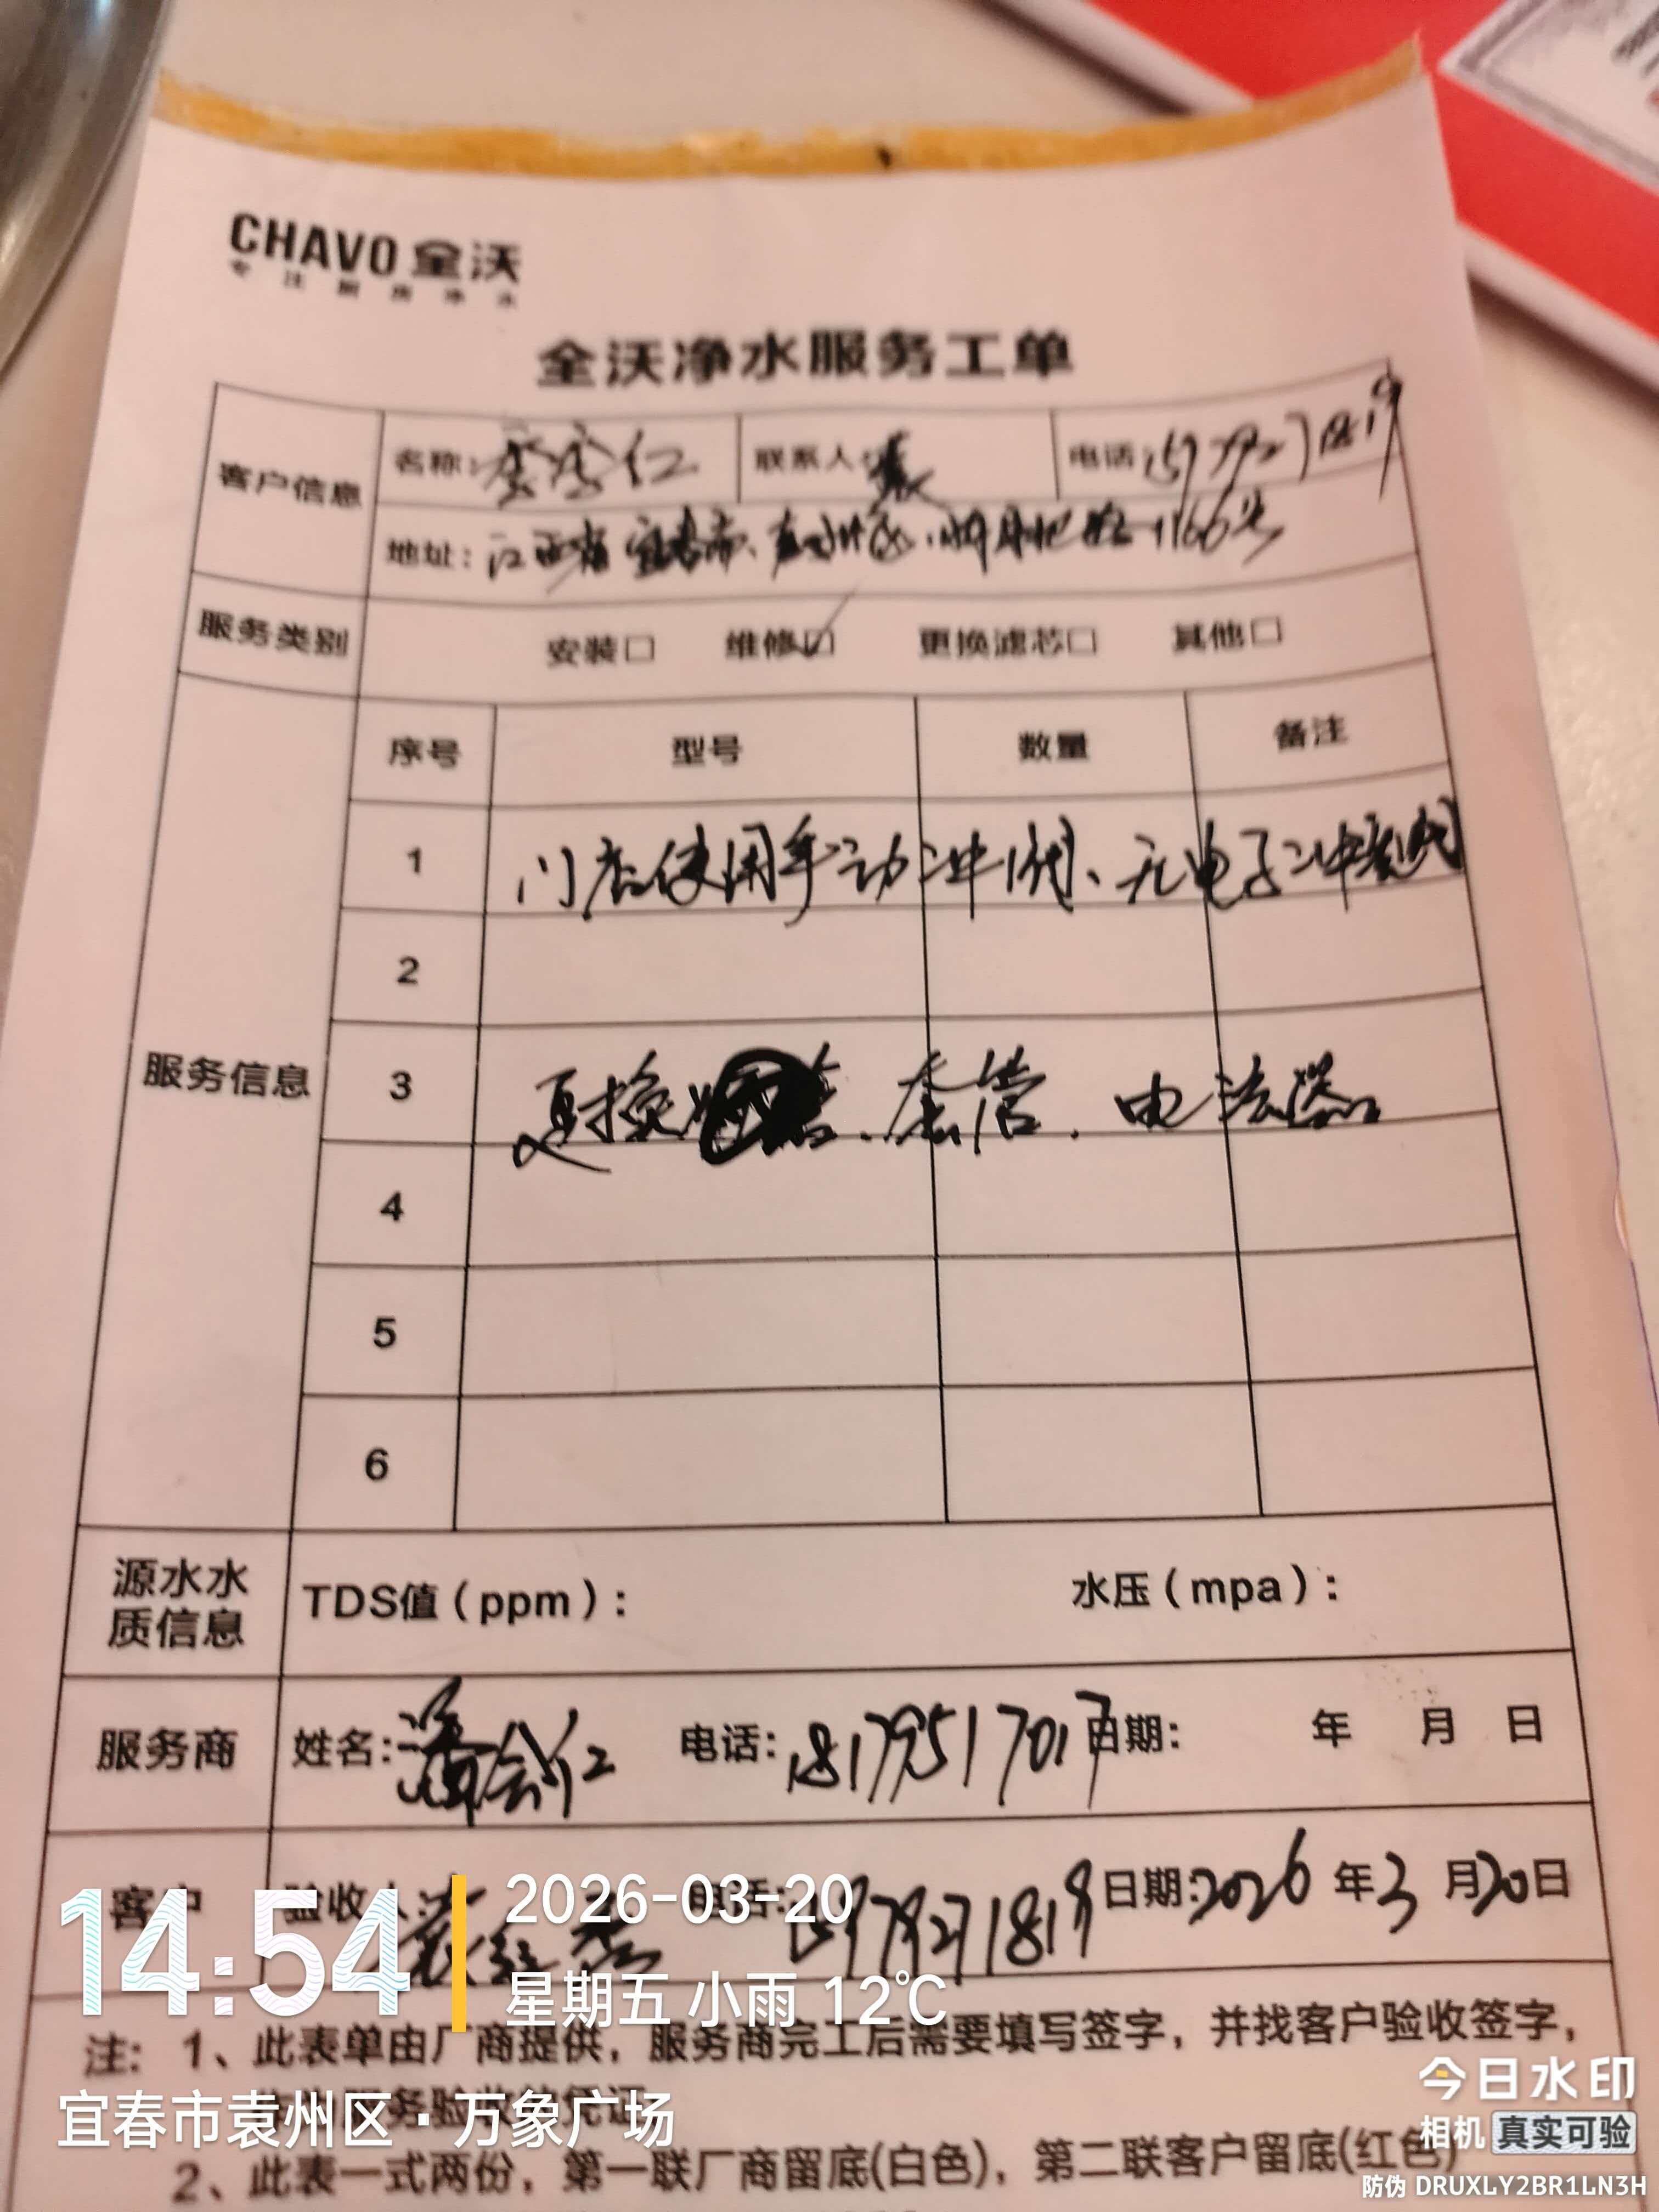 CHAVO 全沃
专注厨房净水
全沃净水服务工单
客户信息 名称: 联系人: 袁 电话: 15979271819
地址: 江西省宜春市、袁州区、明月北路1166号
服务类别 安装□ 维修☑ 更换滤芯□ 其他□
服务信息 序号 型号 数量 备注
1 门店使用手动冲阀、无电子冲
2
3 更换 、套管、电 器
4
5
6
源水水质信息 TDS值(ppm): 水压(mpa):
服务商 姓名: 潘会仁 电话: 18179517017 日期: 年 月 日
客户 验收人: 袁 电话: 15979271819 日期: 2026年3月20日
注: 1、此表单由厂商提供,服务商完工后需要填写签字,并找客户验收签字,
务验收的凭证
2、此表一式两份,第一联厂商留底(白色),第二联客户留底(红色)
14:54
2026-03-20
星期五 小雨 12℃
宜春市袁州区·万象广场
今日水印
相机 真实可验
防伪 DRUXLY2BR1LN3H